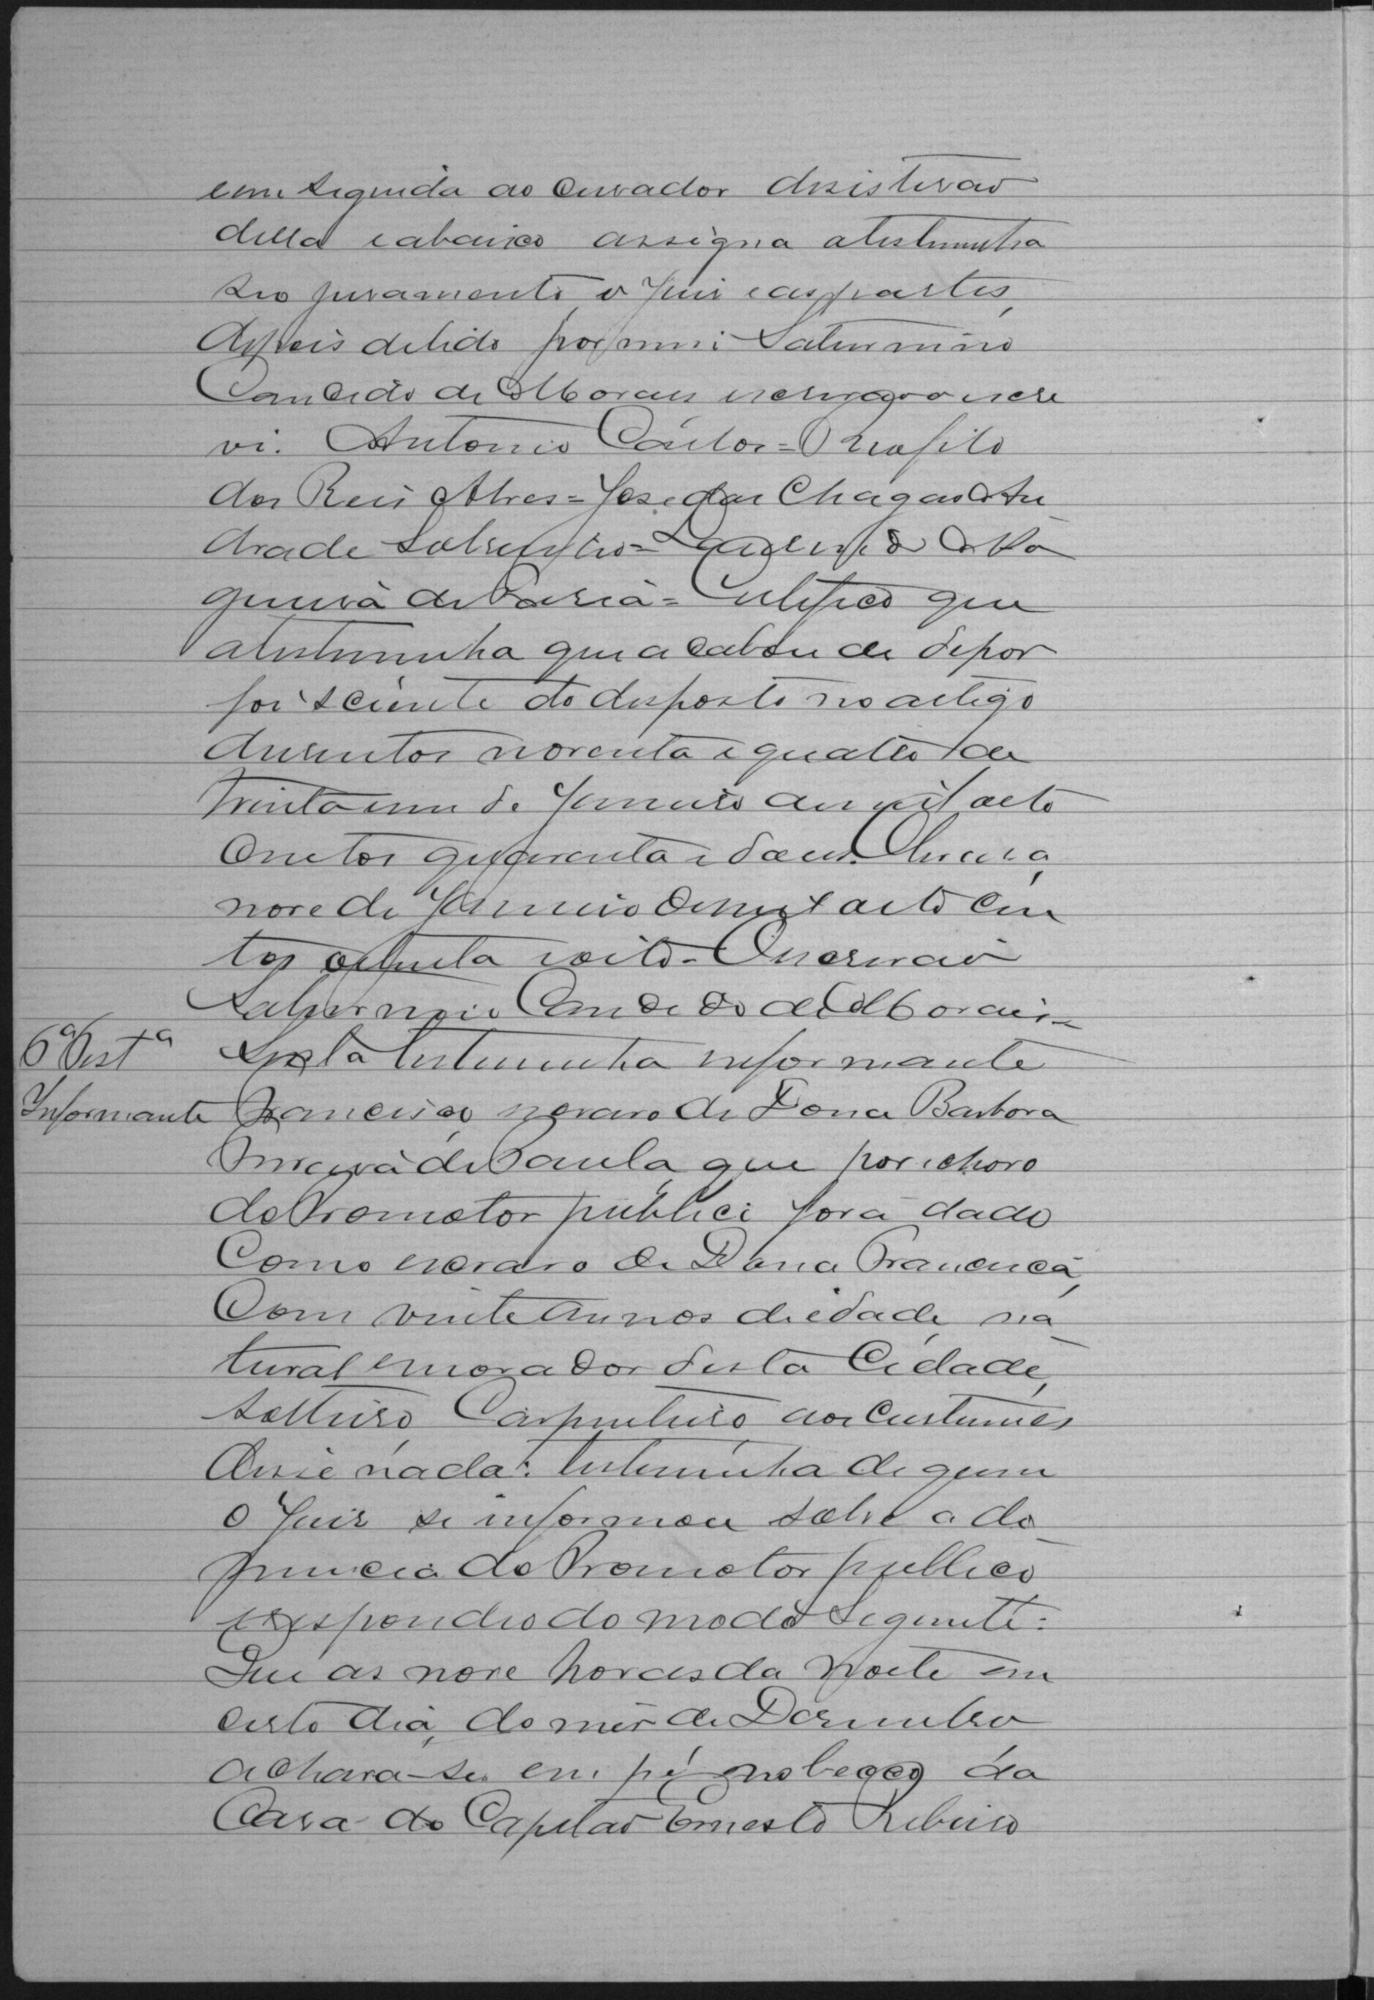 em seguida ao Curador desisterão
della e abaixo assigna a testemunha
seo juramento, o Juiz e as partes,
depois de lido por mim Saturnino
Candido de Moraes escrivão o escre
vi. Antonio Carlos = Theofilo
dos Reis Alves = Jose das Chagas An
drade Sobrinho = de No
gueira de Faria = Certifico que
a testemunha que acabou de depor
foi sciente do desposto no artigo
dusentos noventa e quatro de
trinta e um de Janeiro de mil oito
centos quarenta e dous. Oliveira,
nove de Janeiro de mil oito cen
tos oitenta e oito. O Escrivão
Saturnino Candido de Moraes =
6ª Testª Sexta testemunha informante
Informante Francisco, escravo de Dona Barbora
de Paula, que por
do Promotor publici fora dado
como escravo de Dona Francisca,
Com vinte annos de edade, na
tural e morador desta Cidade,
solteiro, Carpinteiro, aos custumes
disse nada: testemunha de quem
o Juiz se informou sobre a de
nuncia do Promotor publico
e respondeo do modo seguinte:
Que as nove horas da noite em
certo dia, do mês de Desembro
achava-se em pé no becco da
Casa do Capitão Ernesto Ribeiro